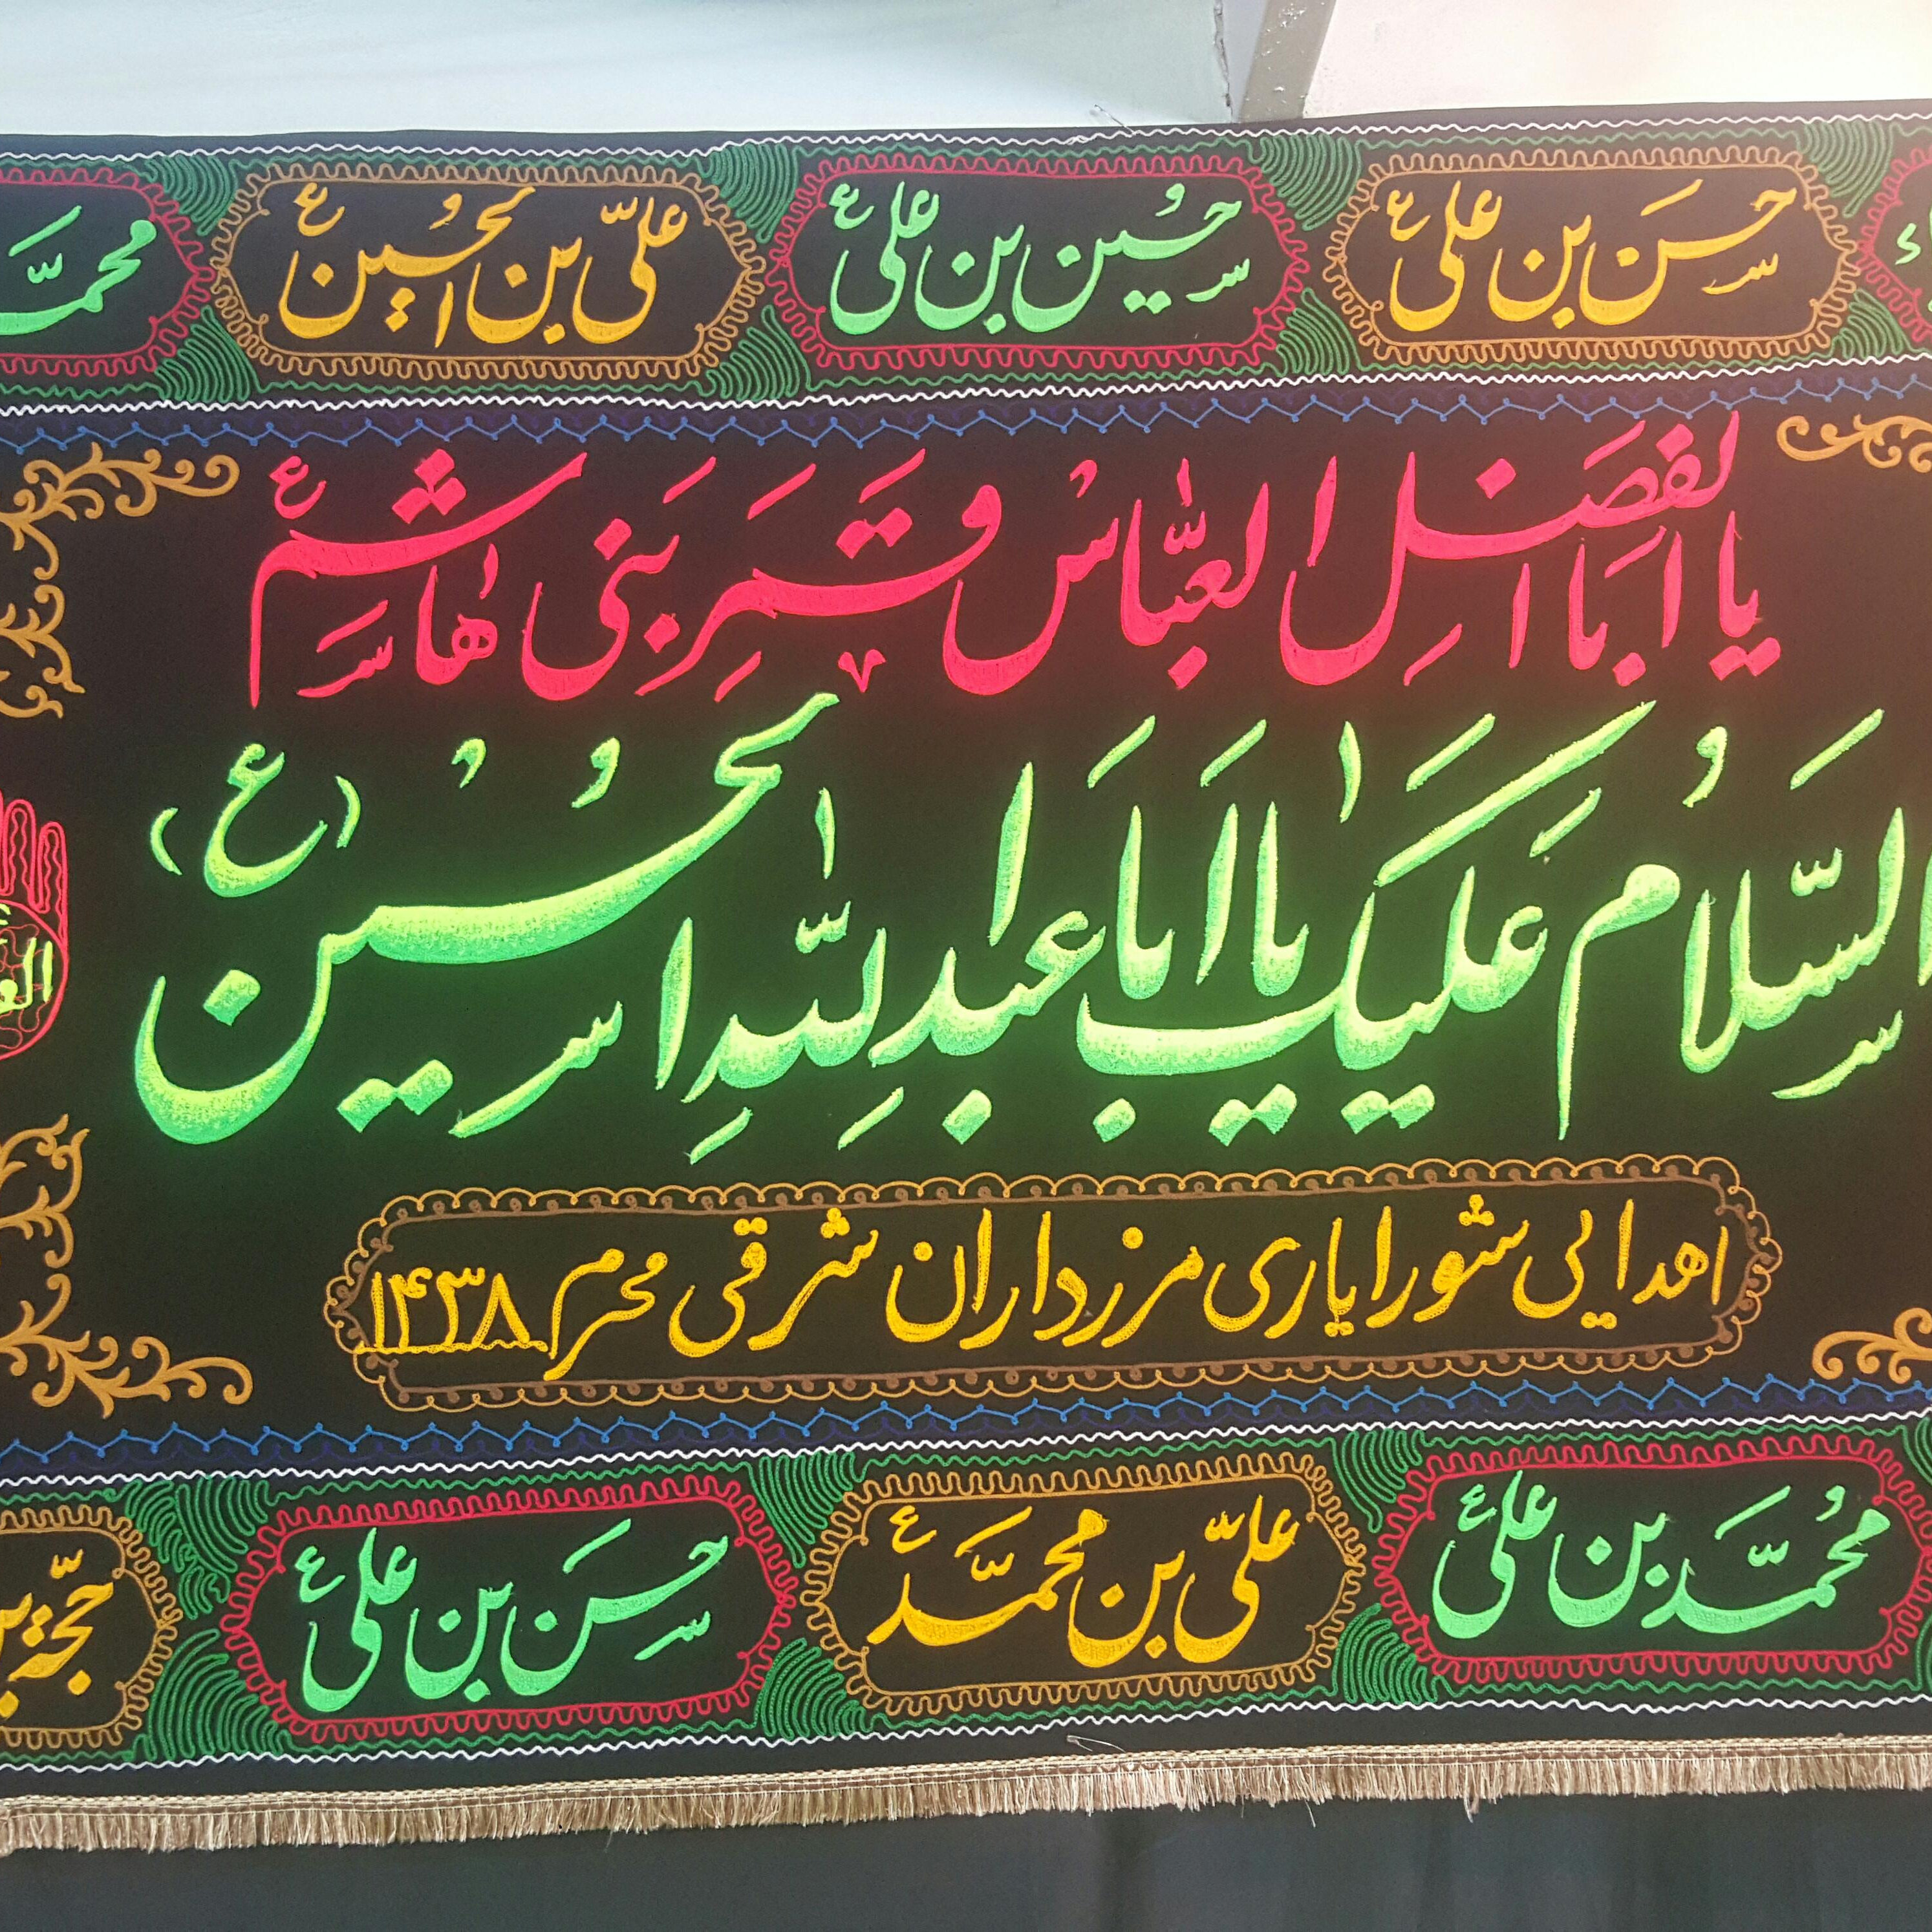 حَسَن بن علی ع حُسین بن علی ع علیّ بن الحُسین ع محمّ
یا اَبَا الفَضلِ العبّاس قَمَرِ بَنی هاشِم ع
السَّلامُ عَلَیکَ یا اَبا عَبدِاللهِ الحُسین (ع)
اهدایی شورایاری مرزداران شرقی محرم ۱۴۳۸
مُحمَّد بن علی ع علیّ بن محمَّد ع حَسَن بن علی ع حجّة بن